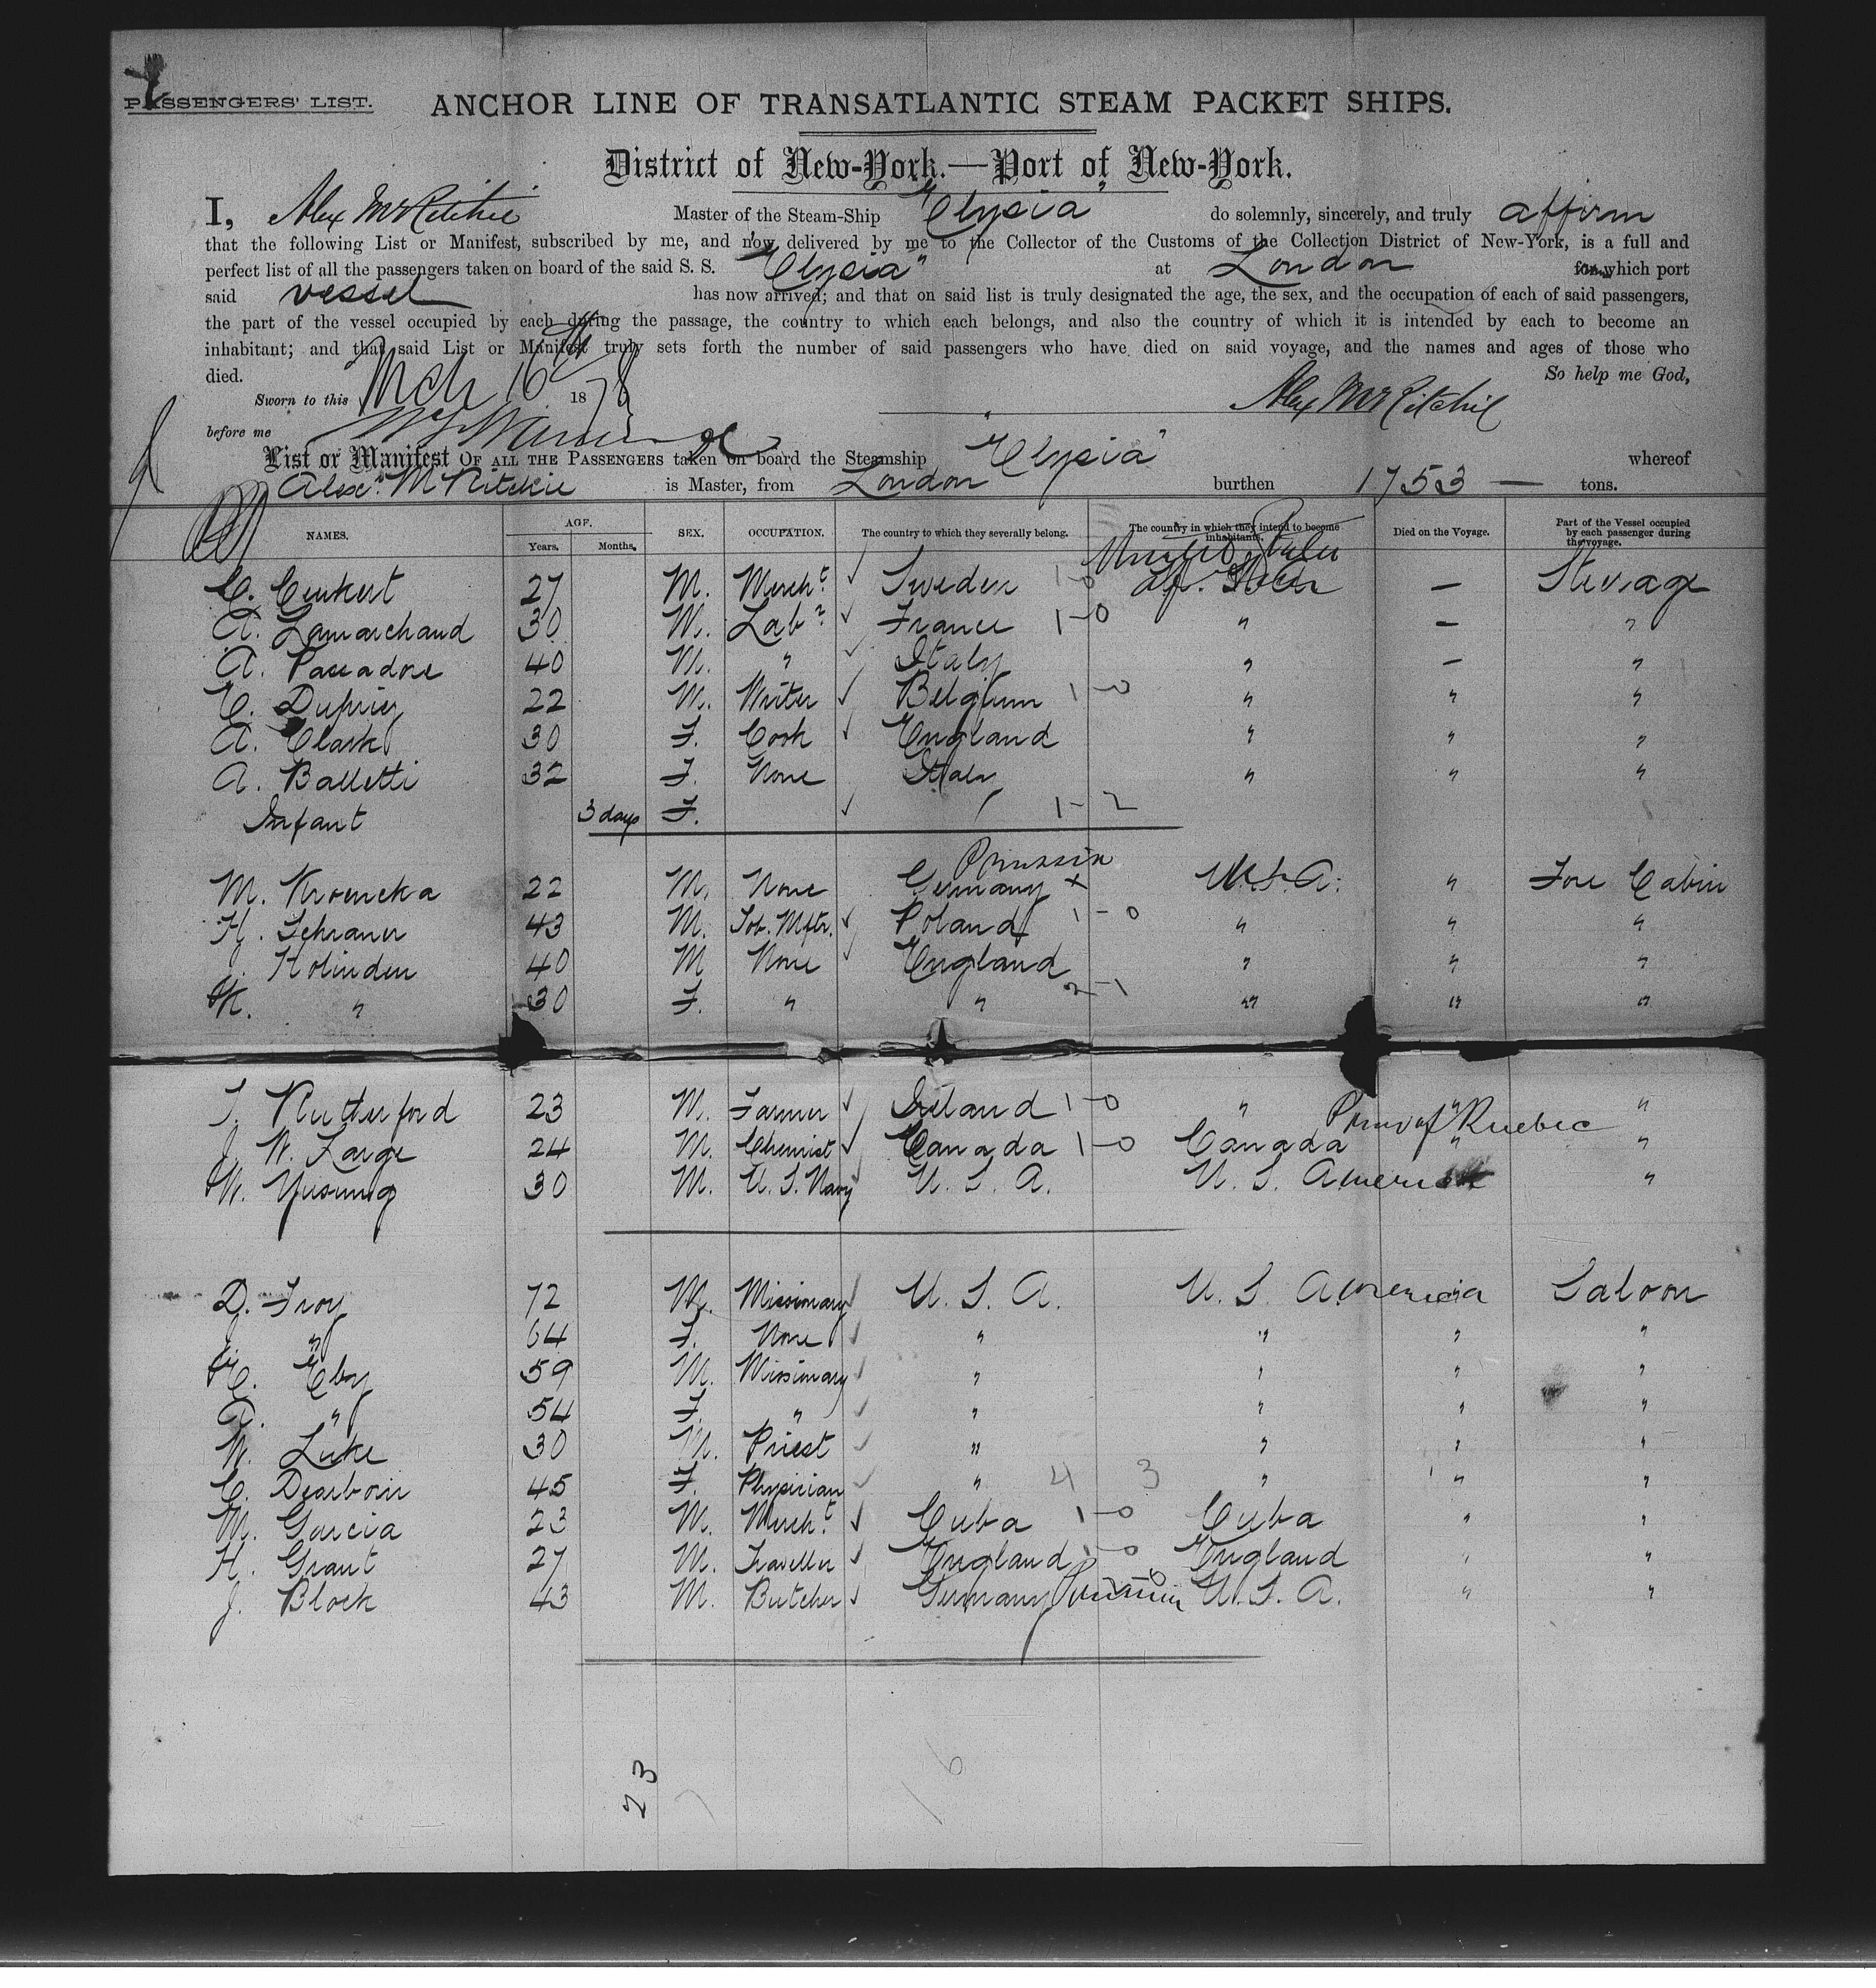 PASSENGERS' LIST.
ANCHOR LINE OF TRANSATLANTIC STEAM PACKET SHIPS.
District of New-York.—Port of New-York.
I, Alex McRitchie Master of the Steam-Ship "Elysia" do solemnly, sincerely, and truly affirm
that the following List or Manifest, subscribed by me, and now delivered by me to the Collector of the Customs of the Collection District of New-York, is a full and
perfect list of all the passengers taken on board of the said S. S. "Elysia" at London from which port
said vessel has now arrived; and that on said list is truly designated the age, the sex, and the occupation of each of said passengers,
the part of the vessel occupied by each during the passage, the country to which each belongs, and also the country of which it is intended by each to become an
inhabitant; and that said List or Manifest truly sets forth the number of said passengers who have died on said voyage, and the names and ages of those who
died. So help me God,
Sworn to this Mch 16th 1878 Alex McRitchie
before me
List or Manifest OF ALL THE PASSENGERS taken on board the Steamship "Elysia" whereof
Alexr. McRitchie is Master, from London burthen 1753 — tons.
NAMES. AGE. Years. Months. SEX. OCCUPATION. The country to which they severally belong. The country in which they intend to become inhabitants. Died on the Voyage. Part of the Vessel occupied by each passenger during the voyage.
United States
27 M. Mercht ✓ Sweden 1-0 — Steerage
A. Lamarchand 30 M. Labr ✓ France 1-0 " — "
A. 40 M. " ✓ Italy " — "
22 M. Writer ✓ Belgium 1-0 " " "
A. Clark 30 F. Cook ✓ England " " "
A. Balletti 32 F. None Italy " " "
Infant 3 days F. ✓ 1-2
Prussia
M. Kroencka 22 M. None Germany x U.S.A. " Fore Cabin
H. Schraner 43 M. Tob. Mftr. ✓ Poland 1-0 " " "
J. Holinden 40 M None ✓ England " " "
K. " 30 F. " " 2-1 " " "
T. Rutherford 23 M. Farmer ✓ Ireland 1-0 " " "
J. W. Large 24 M. Chemist ✓ Canada 1-0 Canada Prov of Quebec " "
W. 30 M. U. S. Navy U. S. A. U. S. America "
D. Troy 72 M. Missionary ✓ U. S. A. U. S. America Saloon
J. " 64 F. None ✓ " " " "
E. Eby 59 M. Missionary ✓ " " " "
A. " 54 F. " ✓ " " " "
W. Luke 30 M. Priest ✓ " " " "
C. Dearborn 45 F. Physician ✓ " 4 3 " " "
M. Garcia 23 M. Mercht ✓ Cuba 1-0 Cuba " "
H. Grant 27 M. Traveller ✓ England 1-0 England " "
J. Block 43 M. Butcher ✓ Germany Prussia U. S. A. " "
23
7
16